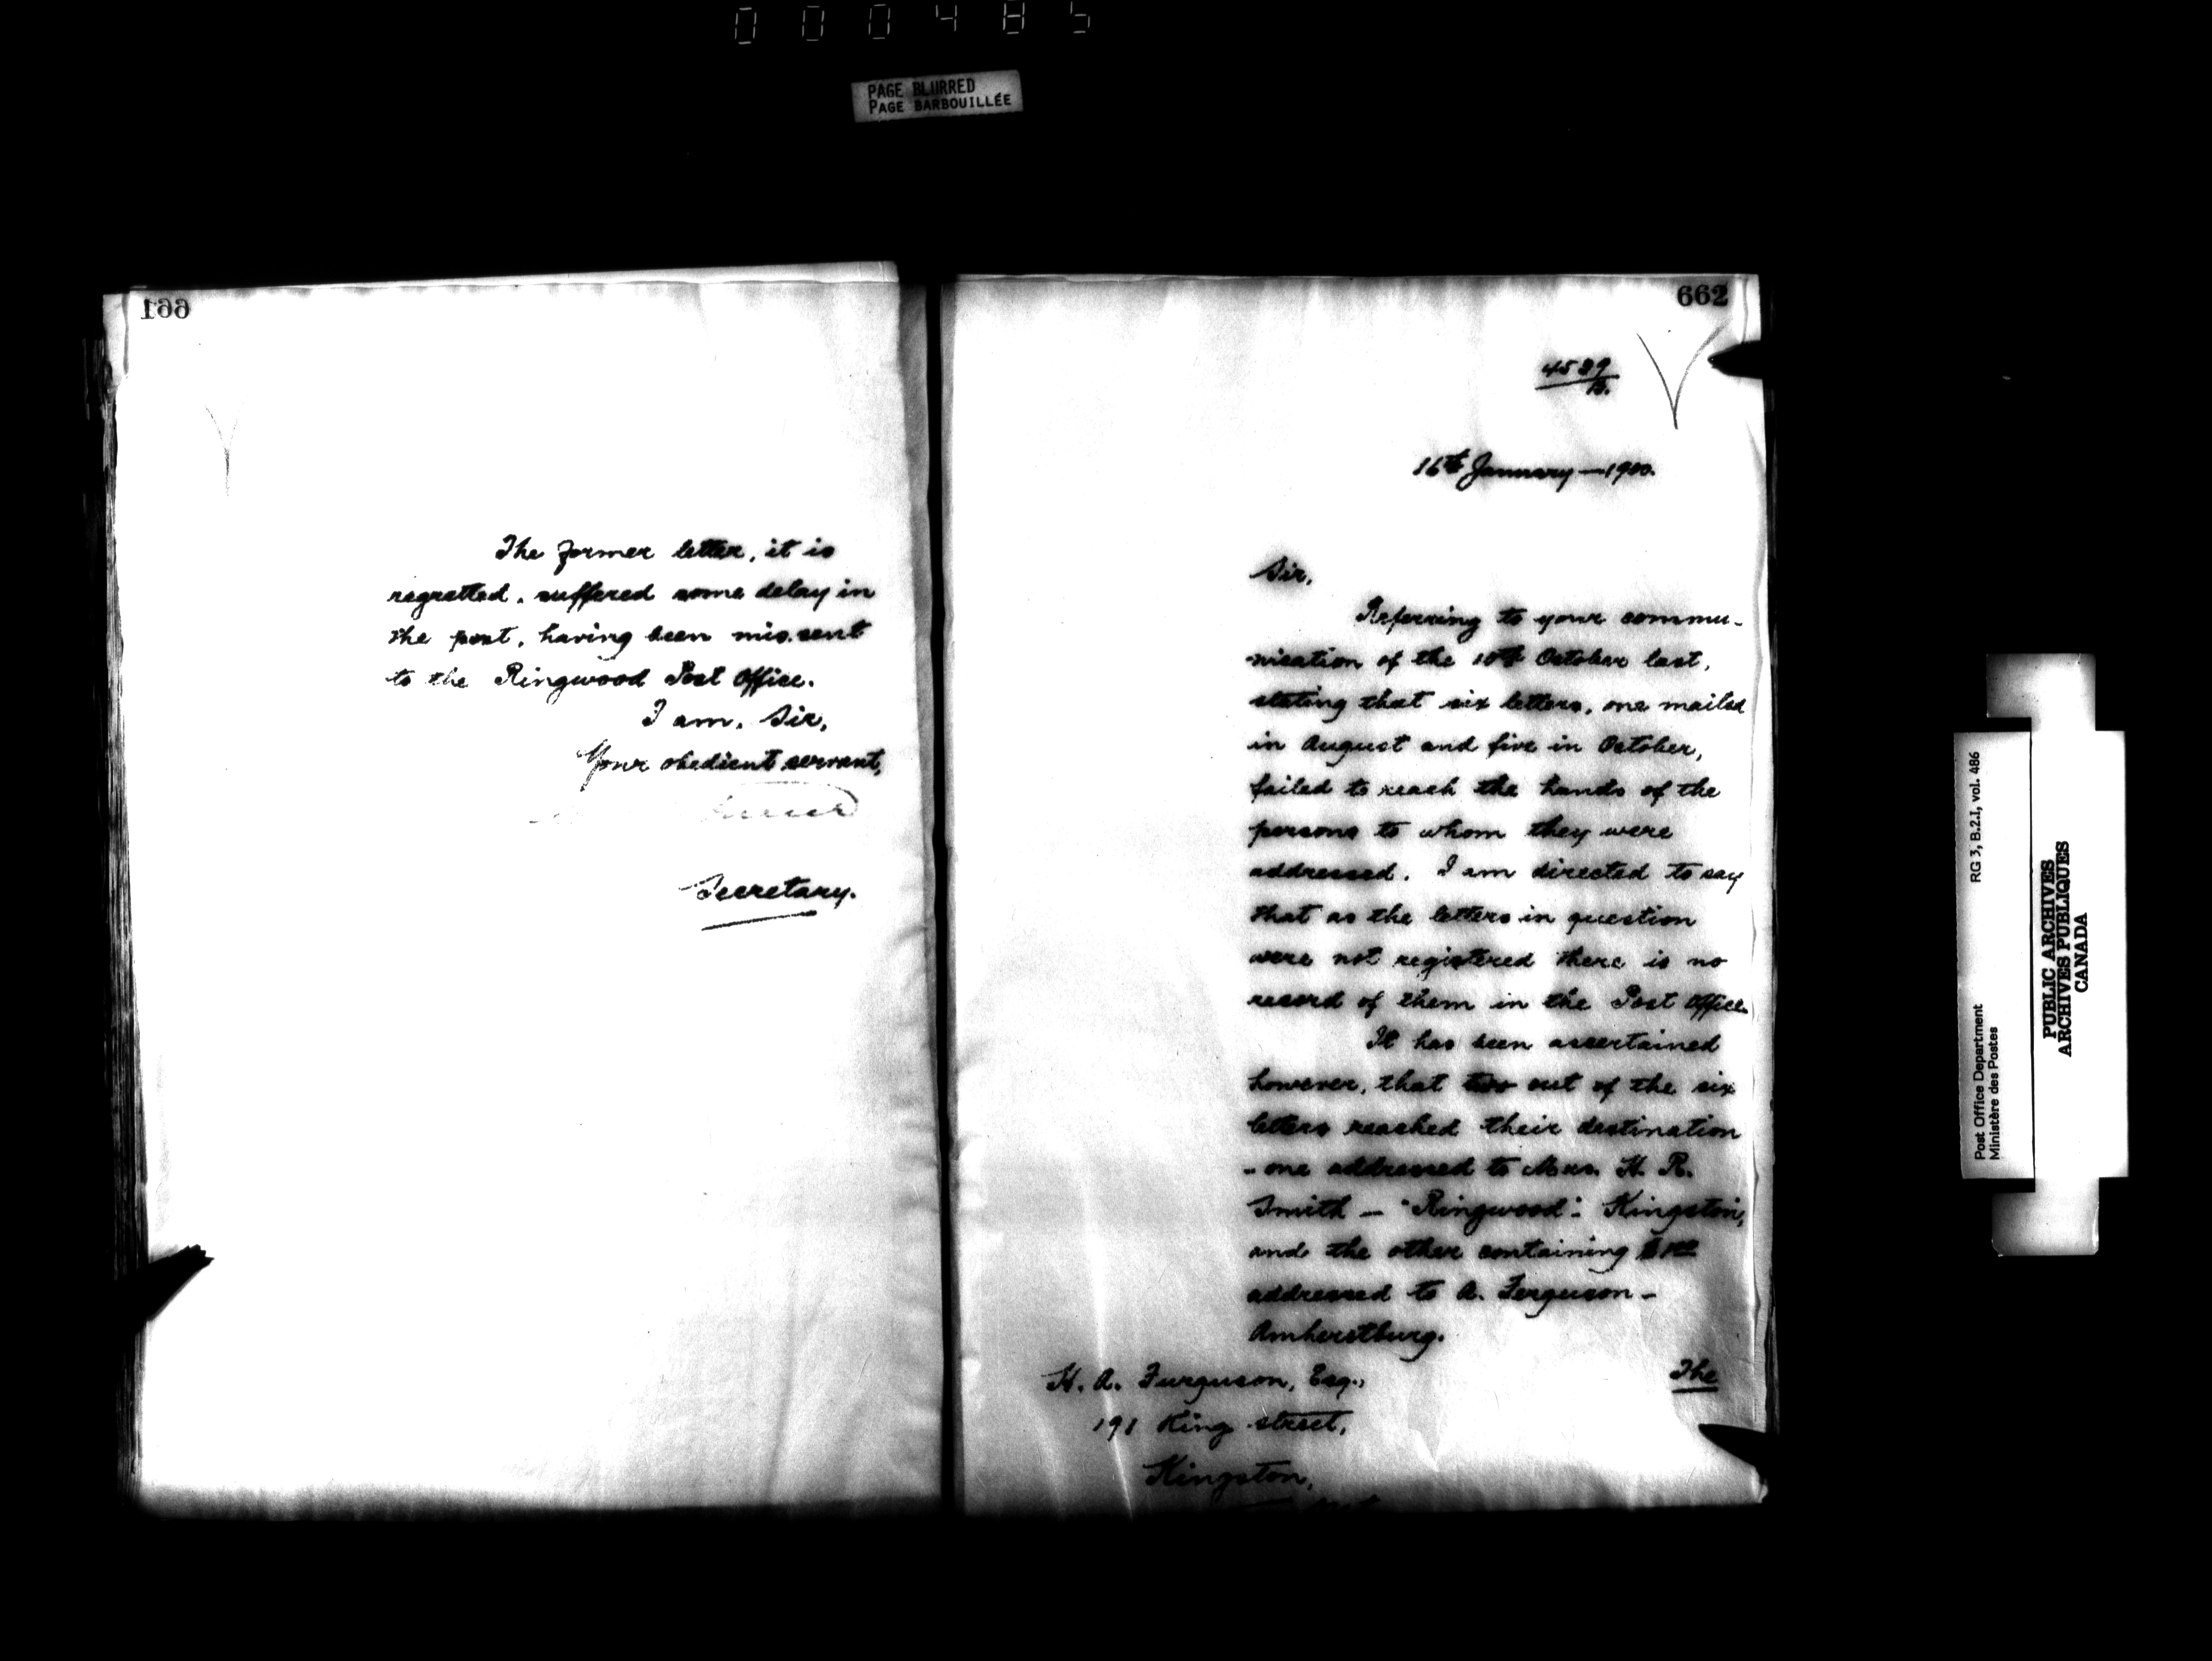 000485
PAGE BLURRED
PAGE BARBOUILLÉE
661
The former letter, it is
regretted, suffered some delay in
the post, having been mis.sent
to the Ringwood Post Office.
I am, Sir,
Your obedient servant,
Secretary.
662
4529
B.
16th January - 1900.
Sir,
Referring to your commu-
-nication of the 10th October last,
stating that six letters, one mailed
in August and five in October,
failed to reach the hands of the
persons to whom they were
addressed. I am directed to say
that as the letters in question
were not registered there is no
record of them in the Post Office.
It has been ascertained
however, that two out of the six
letters reached their destination
- one addressed to Mrs. H. R.
Smith - "Ringwood": Kingston,
and the other containing $1.00
addressed to A. Ferguson -
Amherstburg.
The
H. A. Furguson, Esq.,
191 King street,
Kingston,
RG 3, B.2.I, vol. 486
Post Office Department
Ministère des Postes
PUBLIC ARCHIVES
ARCHIVES PUBLIQUES
CANADA